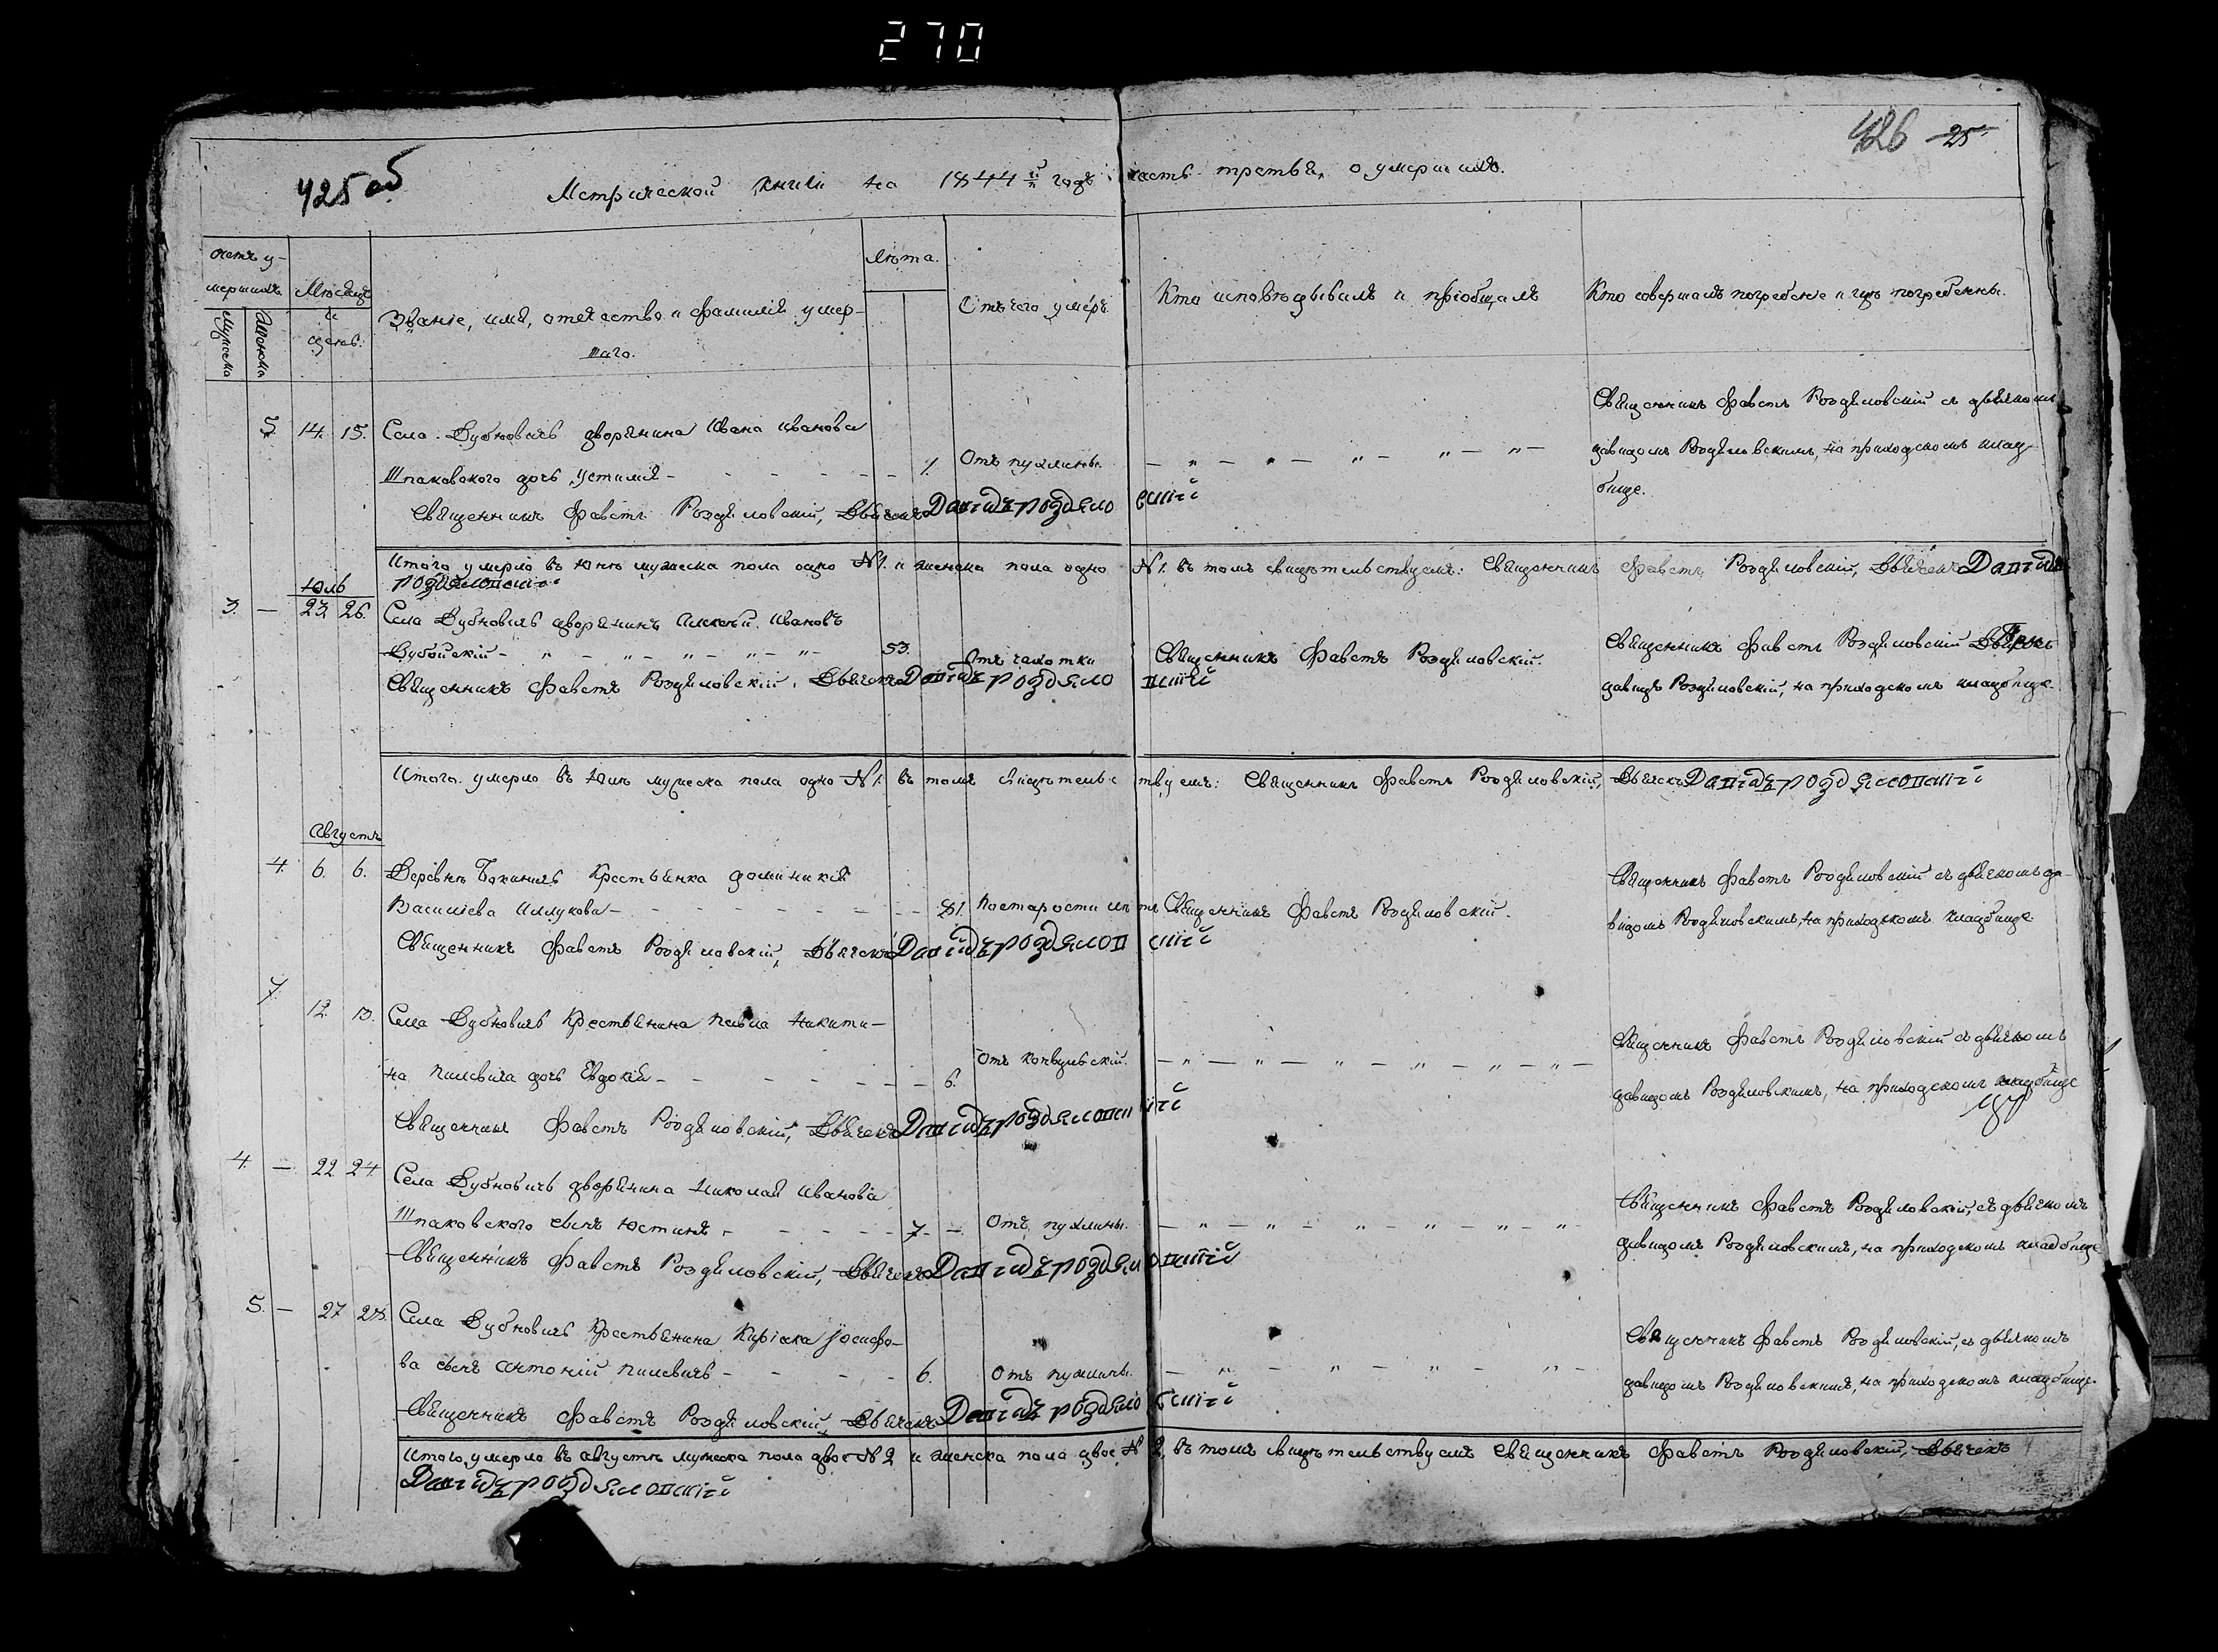 270
425 об
426 25
Метрической книги на 1844й годъ часть третья, о умершихъ.
Счетъ умершихъ
Мужеска
Женска
Мѣсяцъ и день.
Званіе, имя, отчество и фамилія умер-
шаго.
Лѣта.
Отъ чего умеръ
Кто исповѣдывалъ и пріобщалъ
Кто совершалъ погребеніе и гдѣ погребены.
5. 14. 15. Села Дубновичъ дворянина Ивана Иванова
Шпаковского дочь Устинія - - - - - 1. Отъ пухлины. — „ — „ — „ — „ — „ —
Священникъ Фавстъ Роздяловскій съ дьячкомъ
давидомъ Роздяловскимъ, на приходскомъ клад-
бище.
Священникъ Фавстъ Роздяловскій, Дьячекъ Давидъ роздяловскій
Итого умерло въ Юнѣ мужеска пола одно №1. и женска пола одно №1. въ томъ свидѣтельствуемъ: Священникъ Фавстъ Роздяловскій, Дьячекъ Давидъ
роздяловскій
Юль
3. — 23. 26. Села Дубновичъ дворянинъ Алексѣй Ивановъ
Дубойскій - „ - „ - „ - „ - „ - 53. Отъ чахотки Священникъ Фавстъ Роздяловскій.
Священникъ Фавстъ Роздяловскій Дьячекъ
давидъ Роздяловскій, на приходскомъ кладбище.
Священникъ Фавстъ Роздяловскій, Дьячекъ Давидъ роздяловскій
Итого умерло въ Юлѣ мужеска пола одно №1. въ томъ свидѣтельствуемъ: Священникъ Фавстъ Роздяловскій, Дьячекъ Давидъ роздяловскій
Августъ
4. 6. 6. Деревнѣ Бокиничъ Крестьянка доминикія
Василіева - - - - - - - 81. Постарости лѣтъ Священникъ Фавстъ Роздяловскій.
Священникъ Фавстъ Роздяловскій съ дьячкомъ да-
видомъ Роздяловскимъ, на приходскомъ кладбище
Священникъ Фавстъ Роздяловскій, Дьячекъ Давидъ роздяловскій
7. 12. 13. Села Дубновичъ Крестьянина Павла Никити-
на Пилевича дочь Евдокія - - - - - - 6. Отъ конвульскій. — „ — „ — „ — „ — „ — „ —
Священникъ Фавстъ Роздяловскій съ дьячкомъ
давидомъ Роздяловскимъ, на приходскомъ кладбище
Священникъ Фавстъ Роздяловскій, Дьячекъ Давидъ роздяловскій
4. — 22 24 Села Дубновичъ дворянина Николая Иванова
Шпаковского сынъ Юстинъ - - - - - 7. — Отъ пухлины. — „ — „ — „ — „ — „ — „
Священникъ Фавстъ Роздяловскій, съ дьячкомъ
давидомъ Роздяловскимъ, на приходскомъ кладбище
Священникъ Фавстъ Роздяловскій, Дьячекъ Давидъ роздяловскій
5. — 27 28. Села Дубновичъ Крестьянина Киріака Іосифо-
ва сынъ Антоній Пилевичъ - - - - 6. Отъ пухлины. — „ — „ — „ — „ —
Священникъ Фавстъ Роздяловскій, съ дьячкомъ
давидомъ Роздяловскимъ, на приходскомъ кладбище.
Священникъ Фавстъ Роздяловскій, Дьячекъ Давидъ роздяловскій
Итого, умерло въ Августѣ мужеска пола двое №2 и женска пола двое №2, въ томъ свидѣтельствуемъ Священникъ Фавстъ Роздяловскій, Дьячекъ
Давидъ роздяловскій